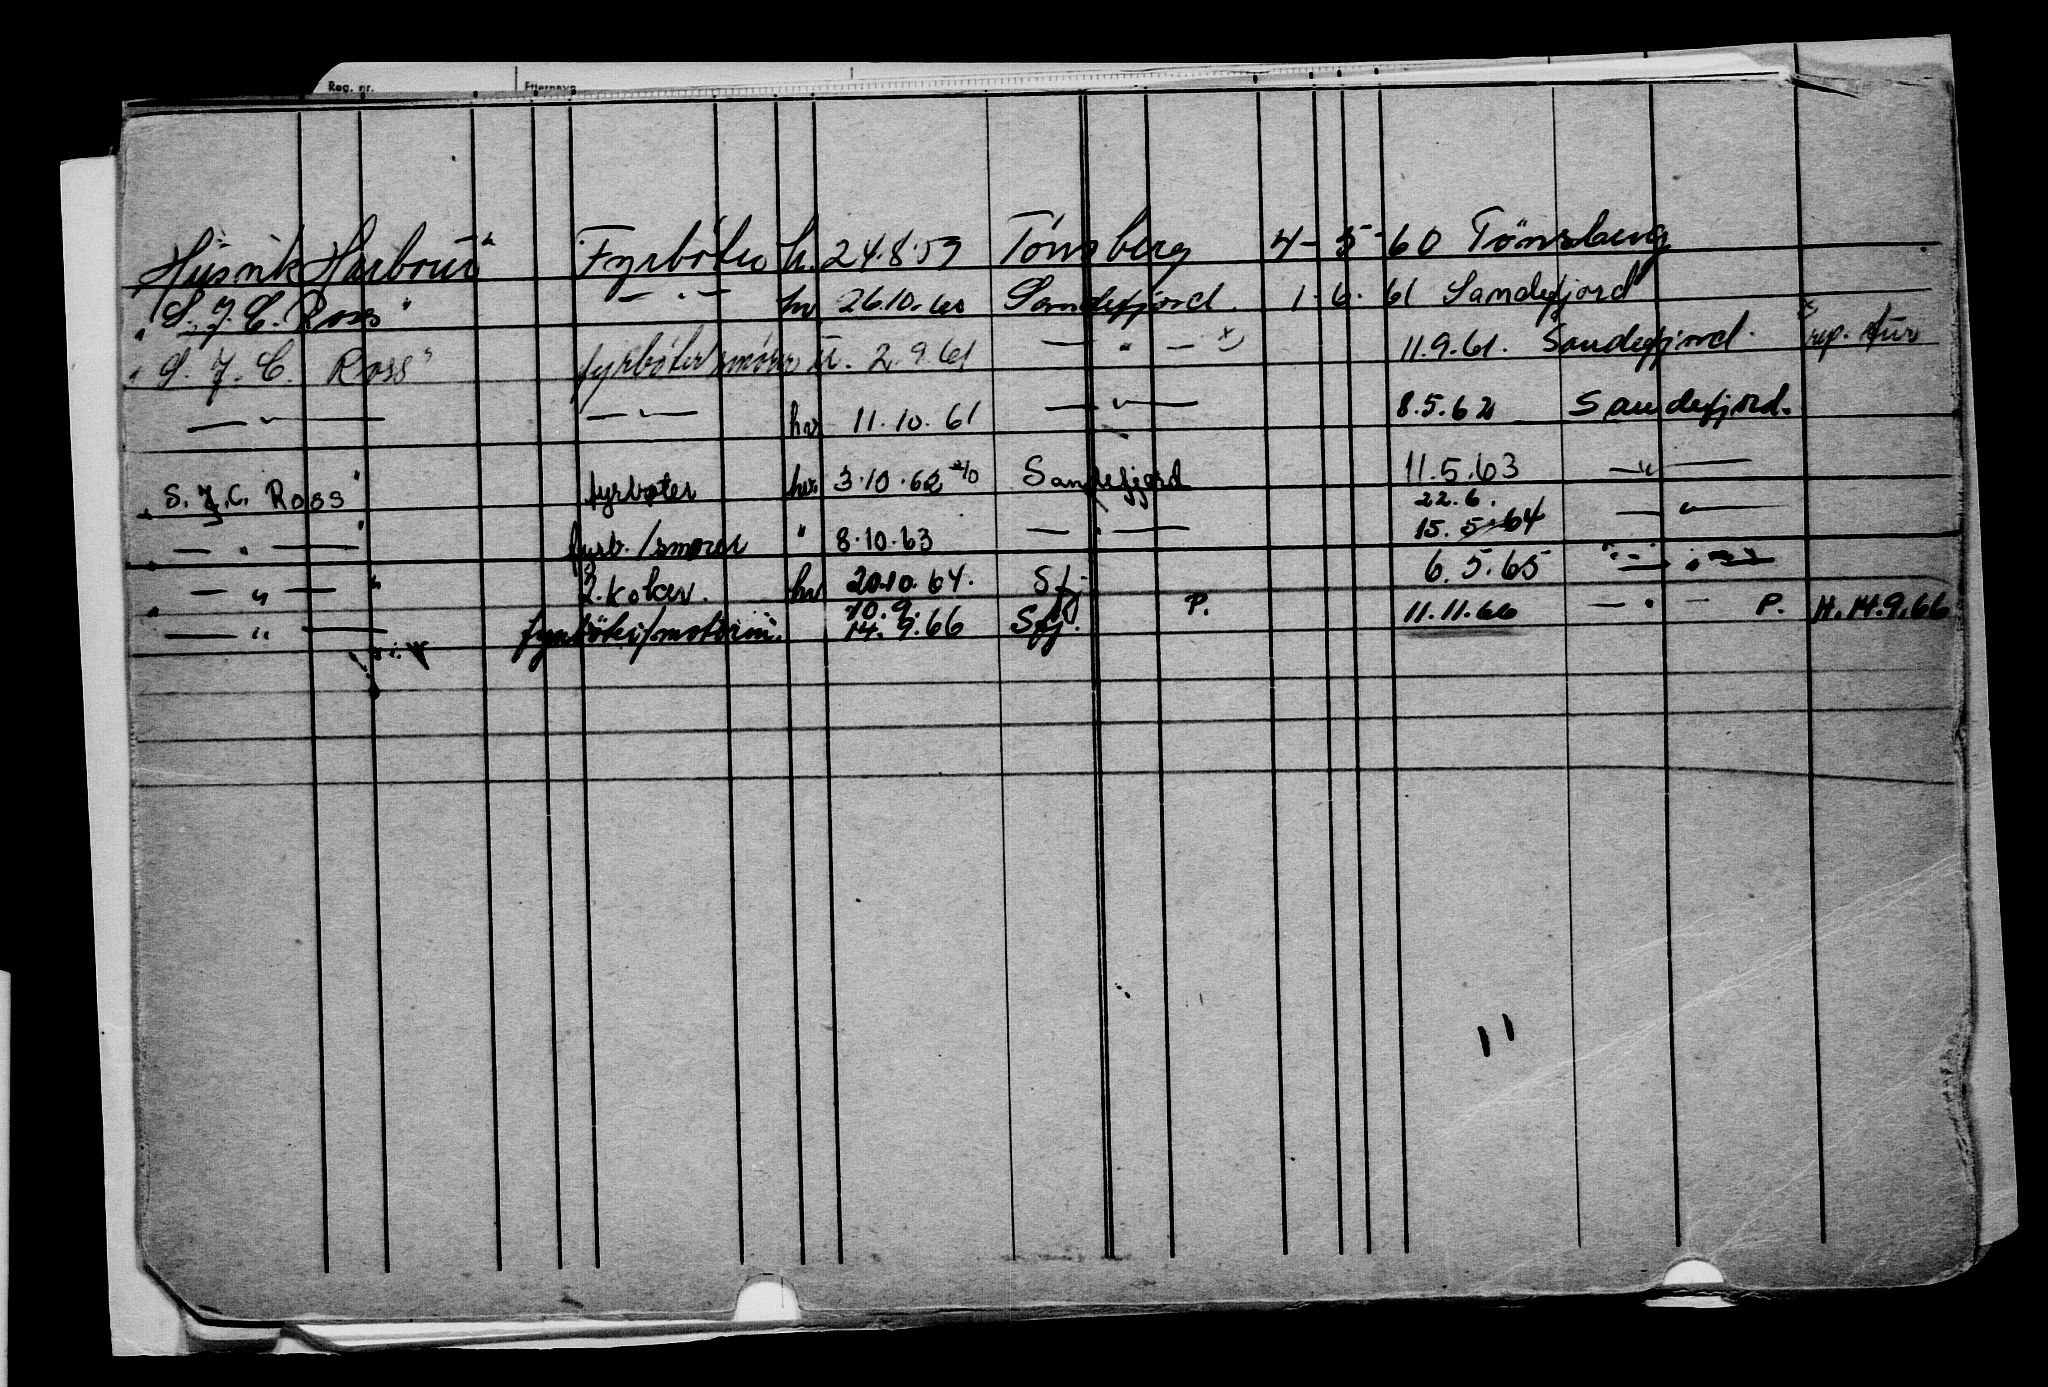 Reg. nr. Etternavn
Husvik Harbour" Fyrböter h. 24.8.59 Tönsberg 4-5-60 Tönsberg
"S. J. C. Ross" — " — hv 26.10.60 Sandefjord. 1.6.61 Sandefjord
"S. J. C. Ross" fyrböter/smörer u. 2.9.61 — " — x) 11.9.61. Sandefjord. x rep. tur
— " — — " — hv 11.10.61 — " — 8.5.62 Sandefjord.
"S. J. C. Ross" fyrbøter hv. 3.10.62 Sandefjord 11.5.63 — " —
22.6.
— " — " fyrb./smører " 8.10.63 — " — 15.5.64 — " —
— " — " 2. koker. hv 20.10.64. Sfj. 6.5.65 — " —
10.9.
— " — fyrböter/motorm. 14.9.66 Sfj. P. 11.11.66 — " — P. H. 14.9.66